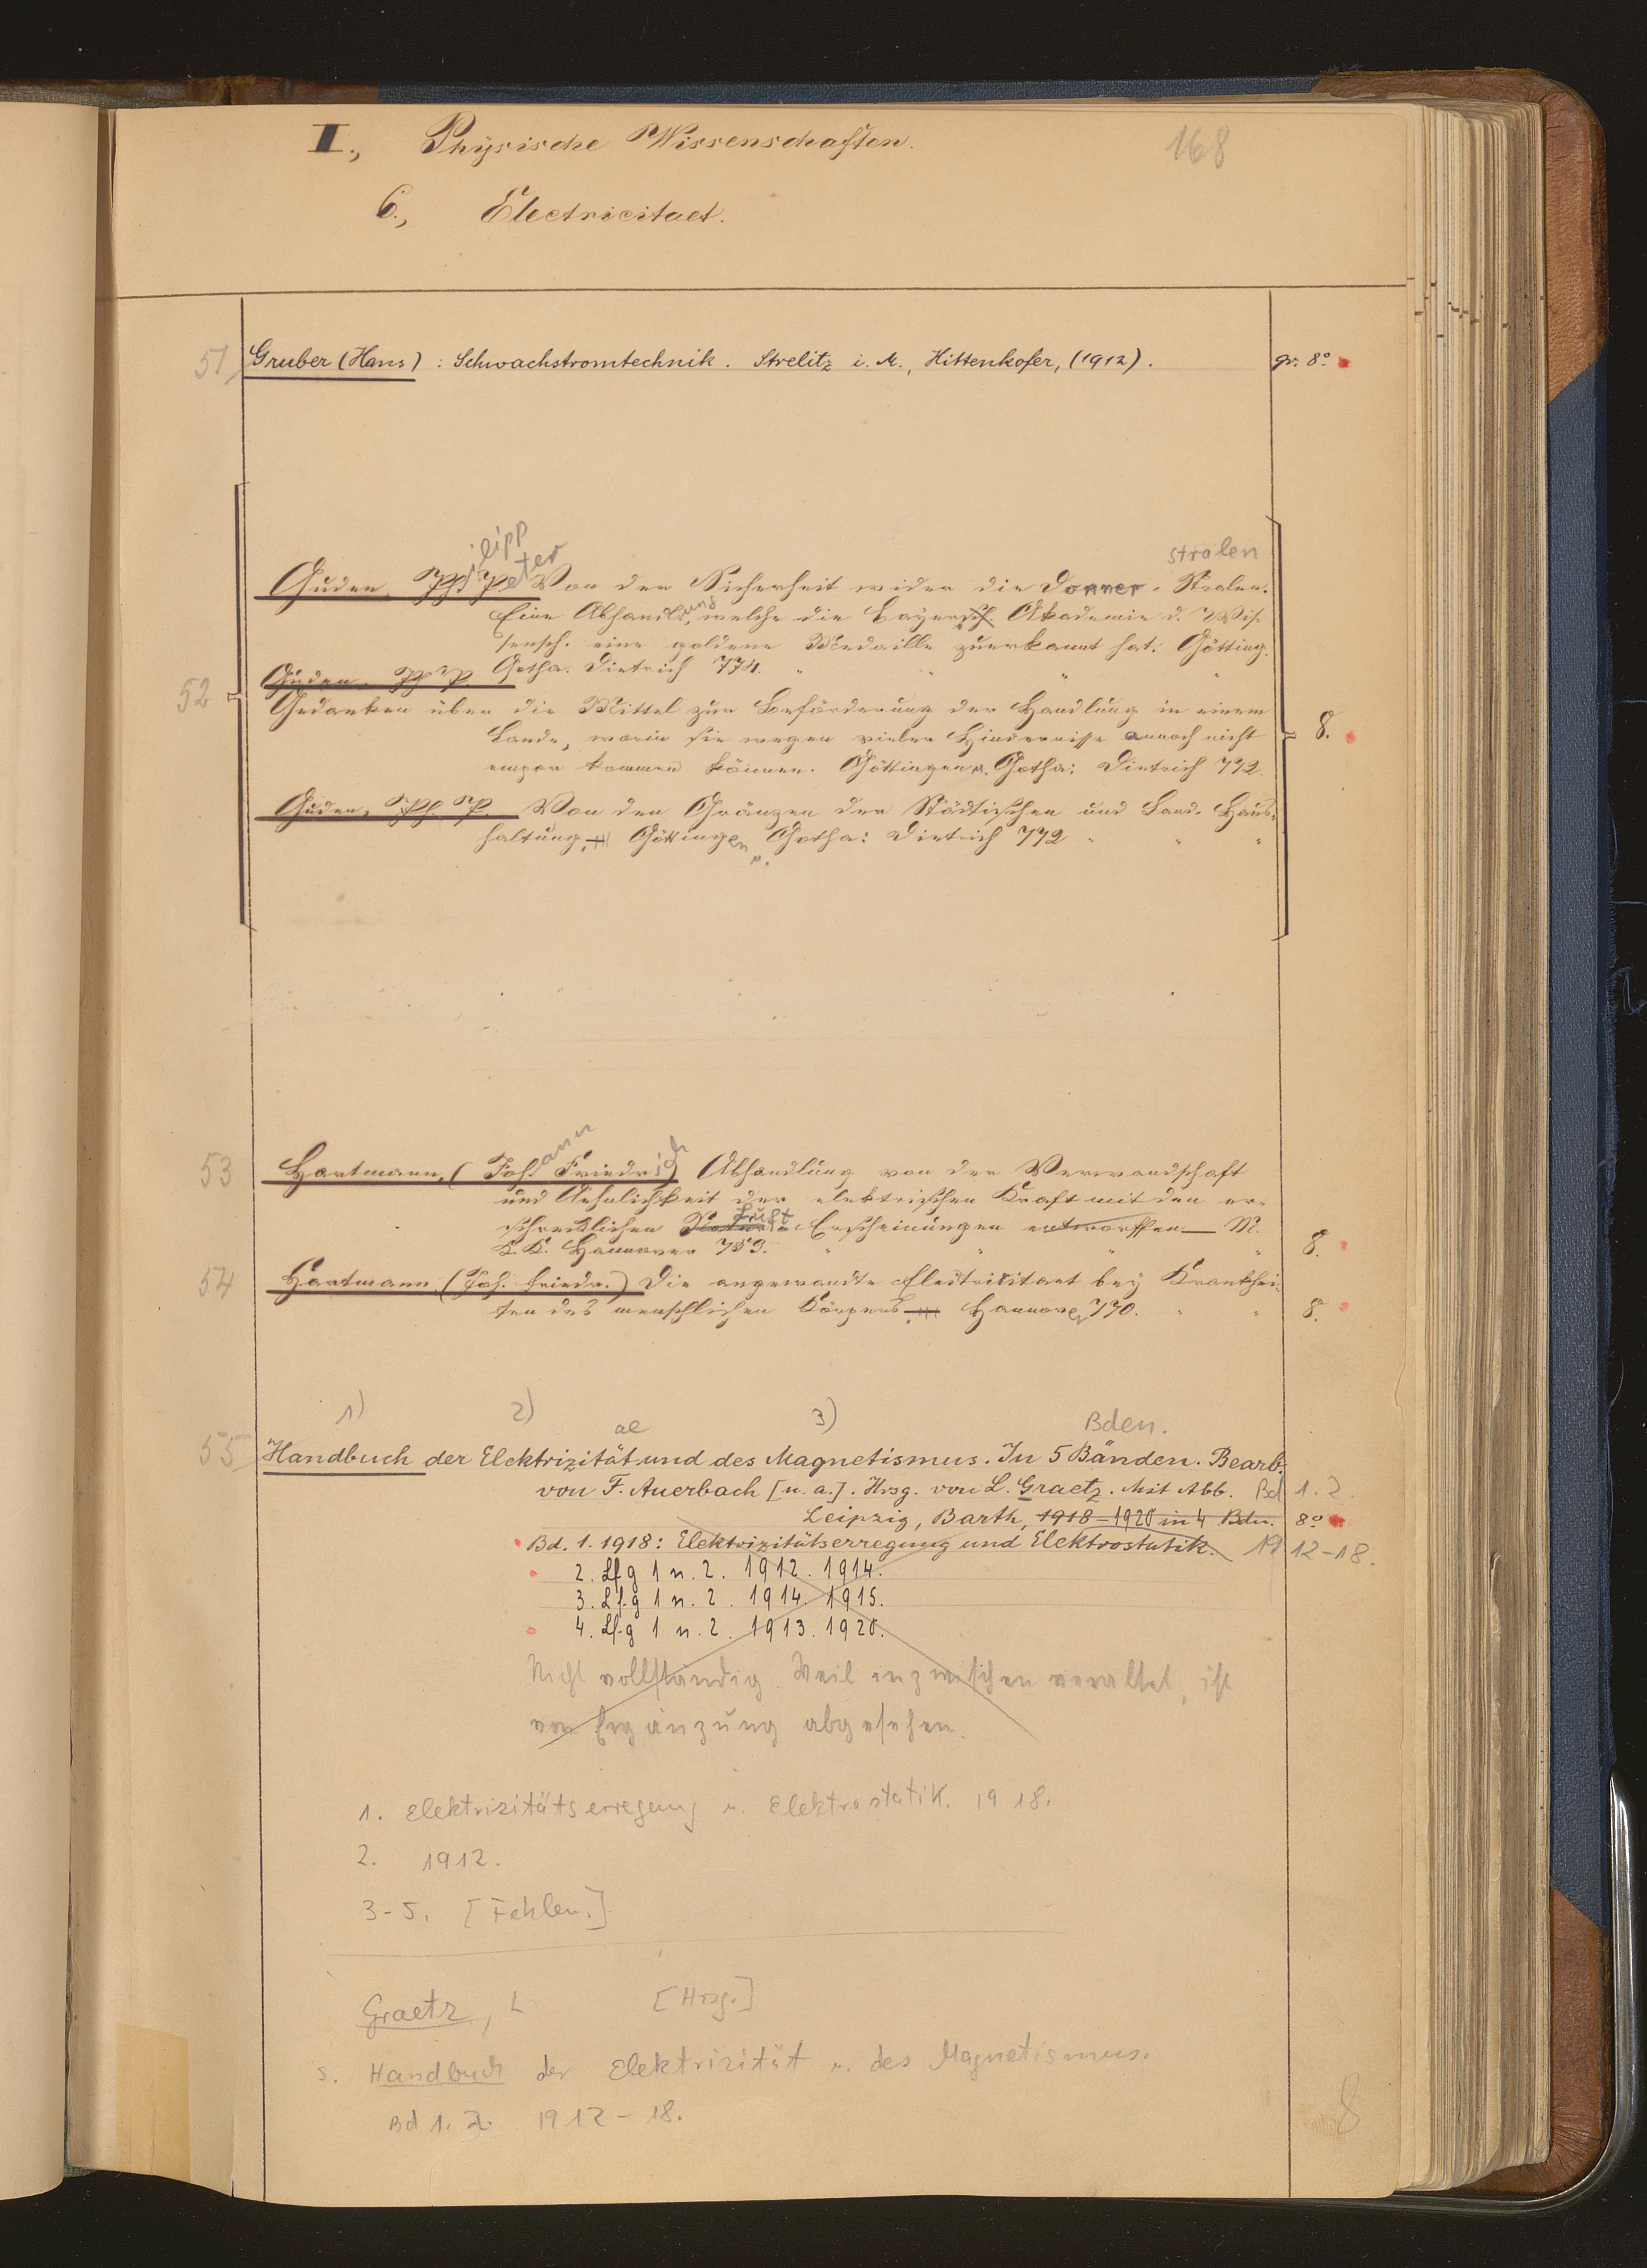 I., Physische Wissenschaften.
168
6., Electricitaet.
51 Gruber (Hans) : Schwachstromtechnik. Strelitz i. M., Hittenkofer, (1912). gr. 8°.
ilipp eter stralen
Guden, Ph. P. Von der Sicherheit wider die Donner-Stralen.
Eine Abhandlung, welche die Bayersch. Akademie d. Wis-
sensch. eine goldene Medaille zuerkannt hat. Götting.
Gotha. Dietrich 774.
52 Guden, Ph. P.
Gedanken über die Mittel zur Beförderung der Handlung in einem
Lande, worin sie wegen vieler Hindernisse annoch nicht 8.
empor kommen können. Göttingen u. Gotha: Dietrich 772.
Guden, Ph. P. Von den Gränzen der Städtischen und Land-Haus-
haltung. Göttingen u. Gotha: Dietrich 772
53 Hartmann, (Johann Friedrich) Abhandlung von der Verwandschaft
und Aehnlichkeit der elektrischen Kraft mit den er-
schrecklichen Luft Erscheinungen entworffen M.
K.K. Hannover 759. 8.
54 Hartmann, (Joh. Friedr.) Die angewandte Electricitaet bey Krankhei-
ten des menschlichen Körpers Hannover 770. 8.
1) 2) ae 3) Bden.
55 Handbuch der Elektrizität und des Magnetismus. In 5 Bänden. Bearb.
von F. Auerbach [u. a.]. Hrsg. von L. Graetz. Mit Abb. Bd 1. 2.
Leipzig, Barth, 1918-1920 in 4 Bdn. 8°
Bd. 1. 1918: Elektrizitätserregung und Elektrostatik. 1912-18.
2. Lfg 1 u. 2. 1912. 1914.
3. Lfg 1 u. 2. 1914. 1915.
4. Lfg 1 u. 2. 1913. 1920.
Nicht vollständig. Weil inzwischen veraltet, ist
von Ergänzung abgesehen.
1. Elektrizitätserregung u. Elektrostatik. 1918.
2. 1912.
3-5. [Fehlen.]
Graetz, L [Hrsg.]
s. Handbuch der Elektrizität u. des Magnetismus.
Bd 1. 2. 1912-18.
8